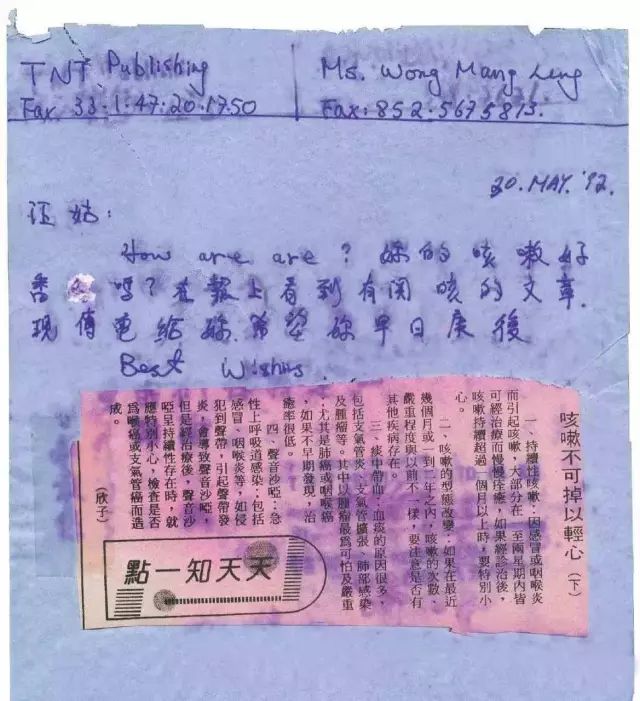 TNT Publishing
Fax 33.1.47.20.17.50
Ms. Wong Mang Leng
Fax: 852.5675813.
20. MAY. '92.
汪姑:
How are are ? 妳的咳嗽好
嗎?在報上看到有関咳的文章.
現傳电給妳.希望妳早日庚後
Best Wishing
咳嗽不可掉以輕心(下)
一、持續性咳嗽:因感冒或咽喉炎
而引起咳嗽,大部分在一至兩星期內皆
可經治療而慢慢痊癒,如果經診治後,
咳嗽持續超過一個月以上時,要特別小
心。
二、咳嗽的型態改變:如果在最近
幾個月或一到二年之內,咳嗽的次數、
嚴重程度與以前不一樣,要注意是否有
其他疾病存在。
三、痰中帶血:血痰的原因很多,
包括支氣管炎、支氣管擴張、肺部感染
及腫瘤等。其中以腫瘤最為可怕及嚴重
:尤其是肺癌或咽喉癌
,如果不早期發現,治
癒率很低。
四、聲音沙啞:急
性上呼吸道感染:包括
感冒、咽喉炎等,如侵
犯到聲帶,引起聲帶發
炎,會導致聲音沙啞,
但是經治療後,聲音沙
啞呈持續性存在時,就
應特別小心,檢查是否
爲喉癌或支氣管癌而造
成。
(欣子)
天天知一點